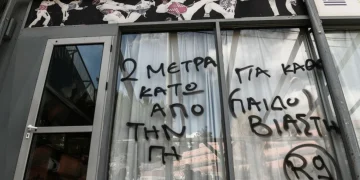 2 ΜΕΤΡΑ
ΚΑΤΩ
ΑΠΟ
ΤΗΝ
ΓΗ
ΓΙΑ ΚΑΘΕ
(ΠΑΙΔΟ)
ΒΙΑΣΤΗ